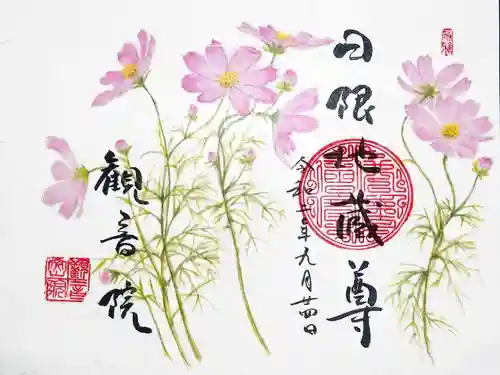 日限地蔵尊
令和二年九月廿四日
観音院